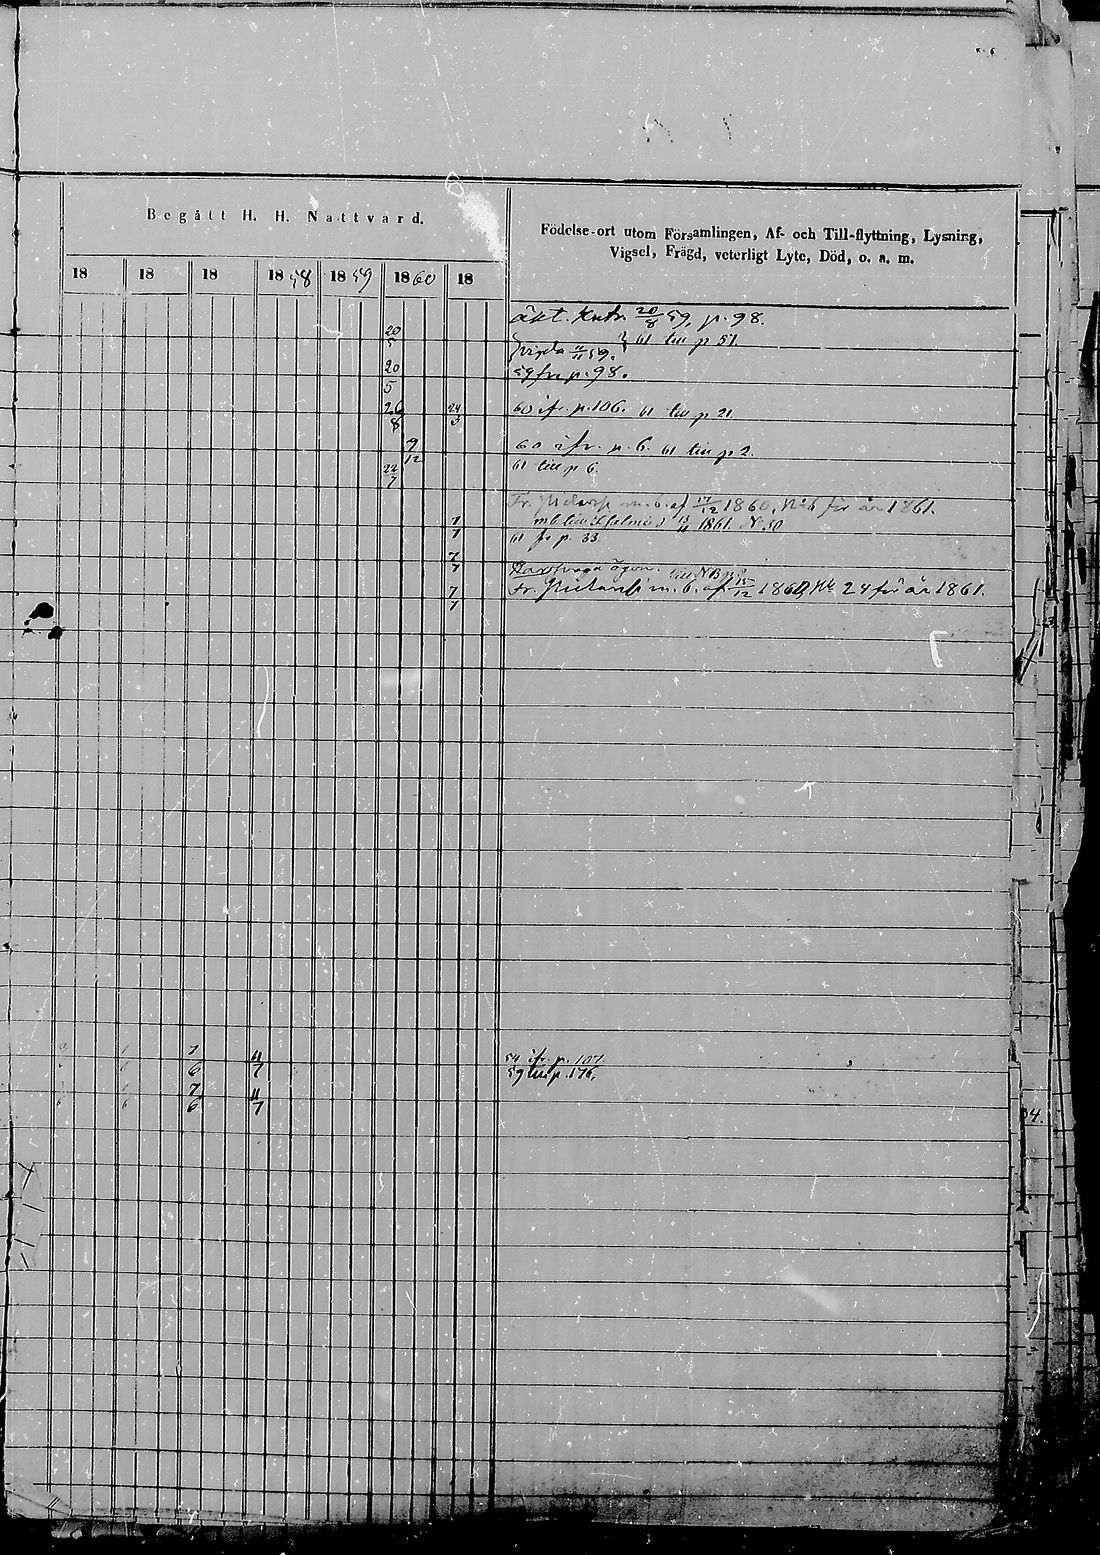 Begått H. H. Nattvard.
Födelse-ort utom Församlingen, Af- och Till-flyttning, Lysning,
Vigsel, Frägd, veterligt Lyte, Död, o. a. m.
18 18 18 1858 1859 1860 18
äkt. 20/8 59, p. 98.
20/5 61 till p 51.
vigda 11/11 59.
20/5 59 fr. p. 98.
26/8 24/3 60 ifr. p. 106. 61 till p 21.
9/12 60 ifr. p. 6. 61 till p 2.
22/7 61 till p 6.
Fr. m. b. af 17/12 1860, No 6 för år 1861.
7/7 1861. N. 50
61 fr p. 33.
7/7 ögon.
7/7 Fr. m. b. af 15/12 1860, No 24 för år 1861.
7/6 11/7 ifr. p. 107.
59 till p. 176.
7/6 11/7
34.